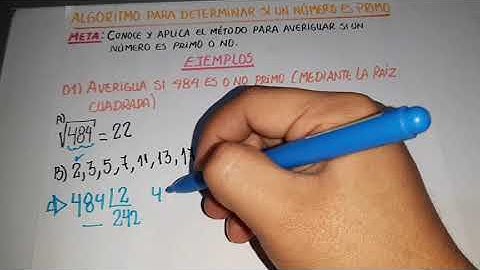 ALGORITMO PARA DETERMINAR SI UN NÚMERO ES PRIMO
META: CONOCE Y APLICA EL MÉTODO PARA AVERIGUAR SI UN
NÚMERO ES PRIMO O NO.
EJEMPLOS
01) AVERIGUA SI 484 ES O NO PRIMO (MEDIANTE LA RAÍZ
CUADRADA)
A)
√484 = 22
B) 2, 3, 5, 7, 11, 13, 17
484 2 4
242